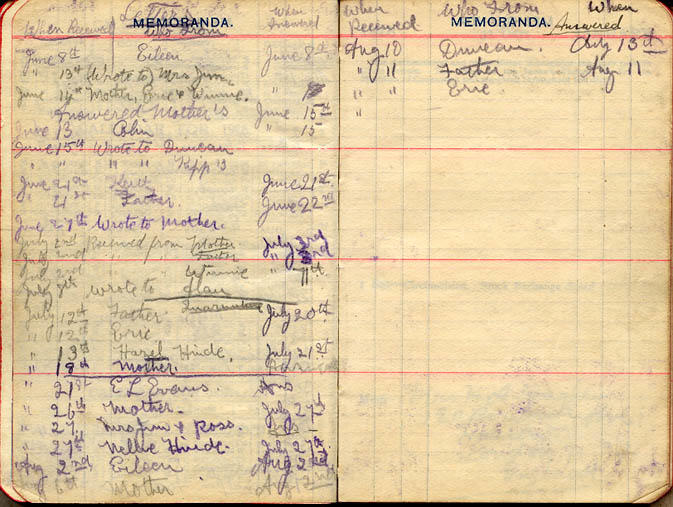 Letters
MEMORANDA.
When Received Who From When Answered
June 8th Eileen June 8th
" 13th Wrote to Mrs Jim.
June 14th Mother, Eric & Winnie. "
Answered Mother's June 15th
June 13 Colin " 15
June 15th Wrote to Duncan
" " " " Kipp's
June 21st Keith June 21st.
" 21st Father. June 22nd
June 27th Wrote to Mother.
July 2nd Received from Mother July 3rd
July 2nd " " Father " 3rd
July 2nd " Winnie " 11th
July 9th wrote to Alan
July 12th Father. July 20th
" 12th Eric
" 13th Hazel Hinde. July 21st
" 18th Mother.
" 21st E L Evans. Ans
" 26th Mother. July 27th
" 27. Mrs Jim & Ross.
" 27th Nellie Hinde. July 27th
Aug 2nd Eileen Aug 2nd
" 6th Mother Aug 12nd
MEMORANDA.
When Received Who From When Answered
Aug 10 Duncan. July 13th
" 11 Father Aug 11
" " Eric
" "